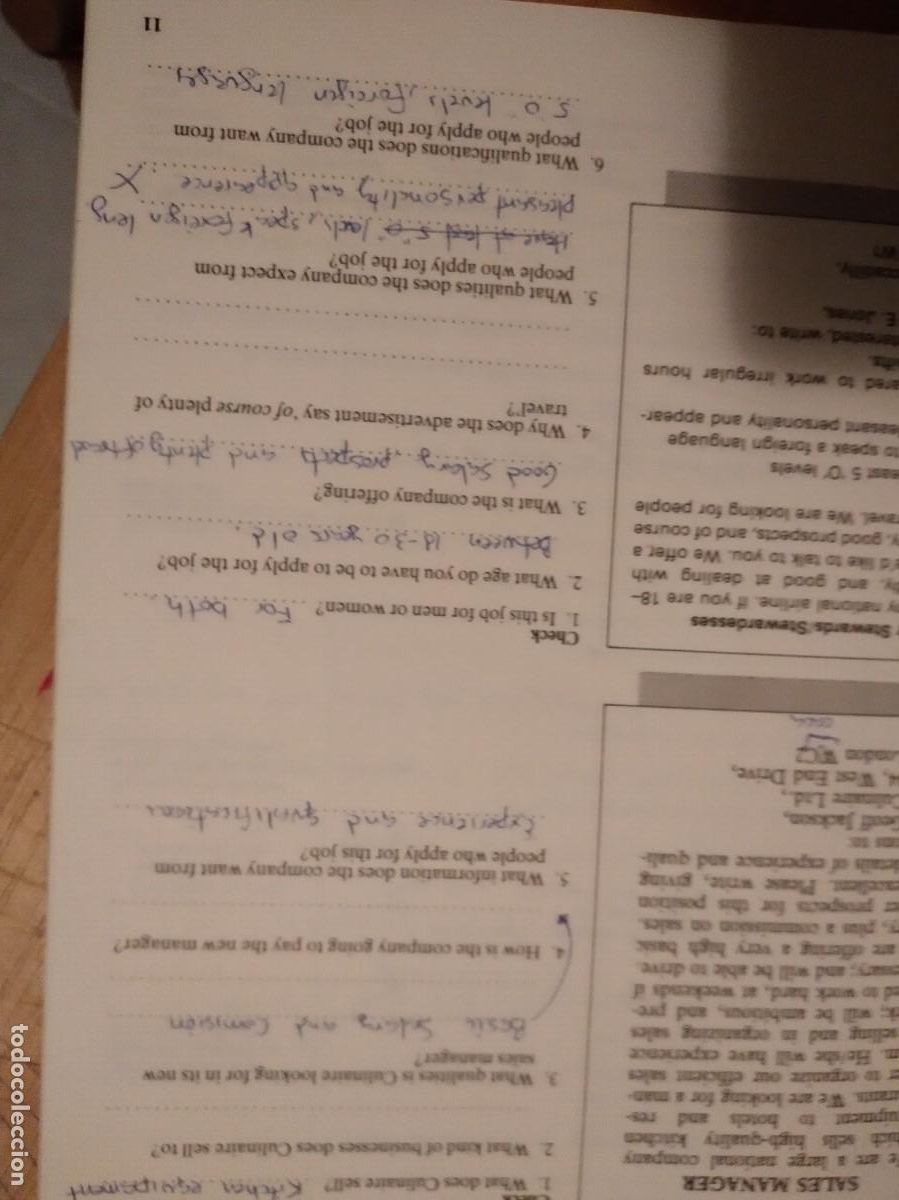 SALES MANAGER
are a large national company
sells high-quality kitchen
to hotels and
We are looking for a
to organize our efficient sales
He/she will have experience
selling and in organizing sales
will be ambitious, and
to work hard, at weekends if
and will be able to drive.
are offering a very high basic
plus a commission on sales.
prospects for this position
excellent. Please write, giving
details of experience and
to:
Geoff Jackson,
Culinaire Ltd.,
West End Drive,
London WC2
Check
1. What does Culinaire sell? Kitchen equipment
2. What kind of businesses does Culinaire sell to?
3. What qualities is Culinaire looking for in its new
sales manager?
Basic Salary and Comision
4. How is the company going to pay the new manager?
5. What information does the company want from
people who apply for this job?
Experience and qualifications
Stewards/Stewardesses
national airline. If you are 18–
and good at dealing with
like to talk to you. We offer a
good prospects, and of course
travel. We are looking for people
5 'O' levels
to speak a foreign language
personality and
to work irregular hours
write to:
E. Jones,
Check
1. Is this job for men or women? For both
2. What age do you have to be to apply for the job?
Between 18-30 years old.
3. What is the company offering?
Good salary, prospects and plenty of travel
4. Why does the advertisement say 'of course plenty of
travel'?
5. What qualities does the company expect from
people who apply for the job?
speak foreign
pleasant personality and appearence X
6. What qualifications does the company want from
people who apply for the job?
5 "O" levels, foreign lenguages
11
todocoleccion